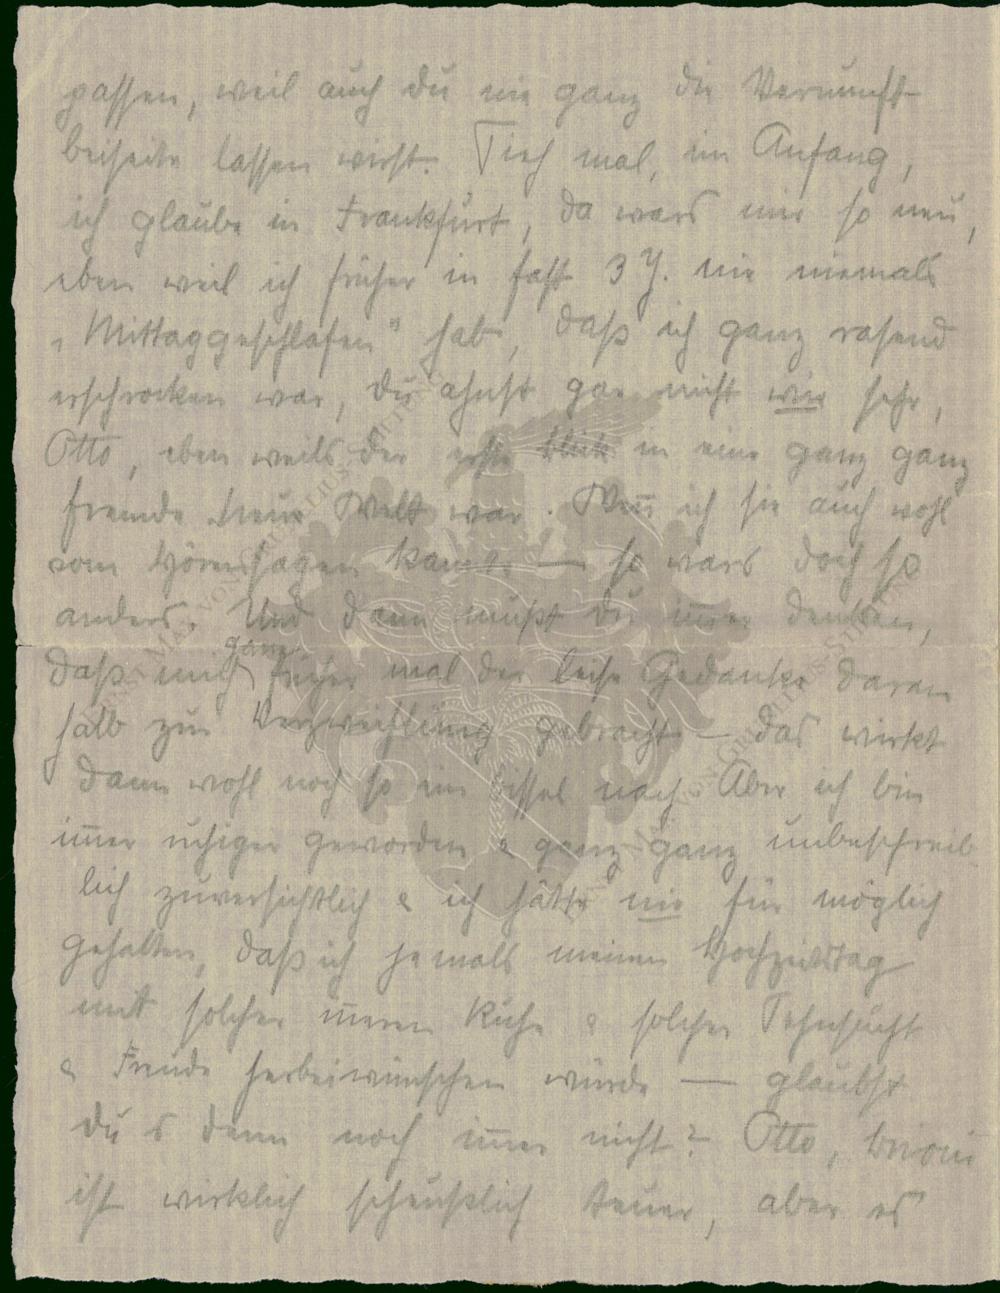 passen, weil auch du nie ganz die Vernunft
beiseite lassen wirst. Sieh mal, im Anfang,
ich glaube in Frankfurt, da wars mir so neu,
eben weil ich früher in fast 3 J. nie niemals
„Mittaggeschlafen" hab, daß ich ganz rasend
erschrocken war, du ahnst gar nicht wie sehr,
Otto, eben weils der erste Blick in eine ganz ganz
fremde neue Welt war. Wen̄ ich sie auch wohl
vom Hörensagen kannte — so wars doch so
anders. Und dann mußt du im̄er denken,
daß mich ganz früher mal der leise Gedanke daran
halb zur Verzweiflung gebracht — das wirkt
dann wohl noch so ein bissel nach. Aber ich bin
im̄er ruhiger geworden & ganz ganz unbeschreib-
lich zuversichtlich & ich hätte nie für möglich
gehalten, daß ich jemals meinen Hochzeitstag
mit solcher in̄eren Ruhe & solcher Sehnsucht
& Freude herbeiwünschen würde — glaubst
du s denn noch im̄er nicht? Otto, Brioni
ist wirklich scheußlich teuer, aber es